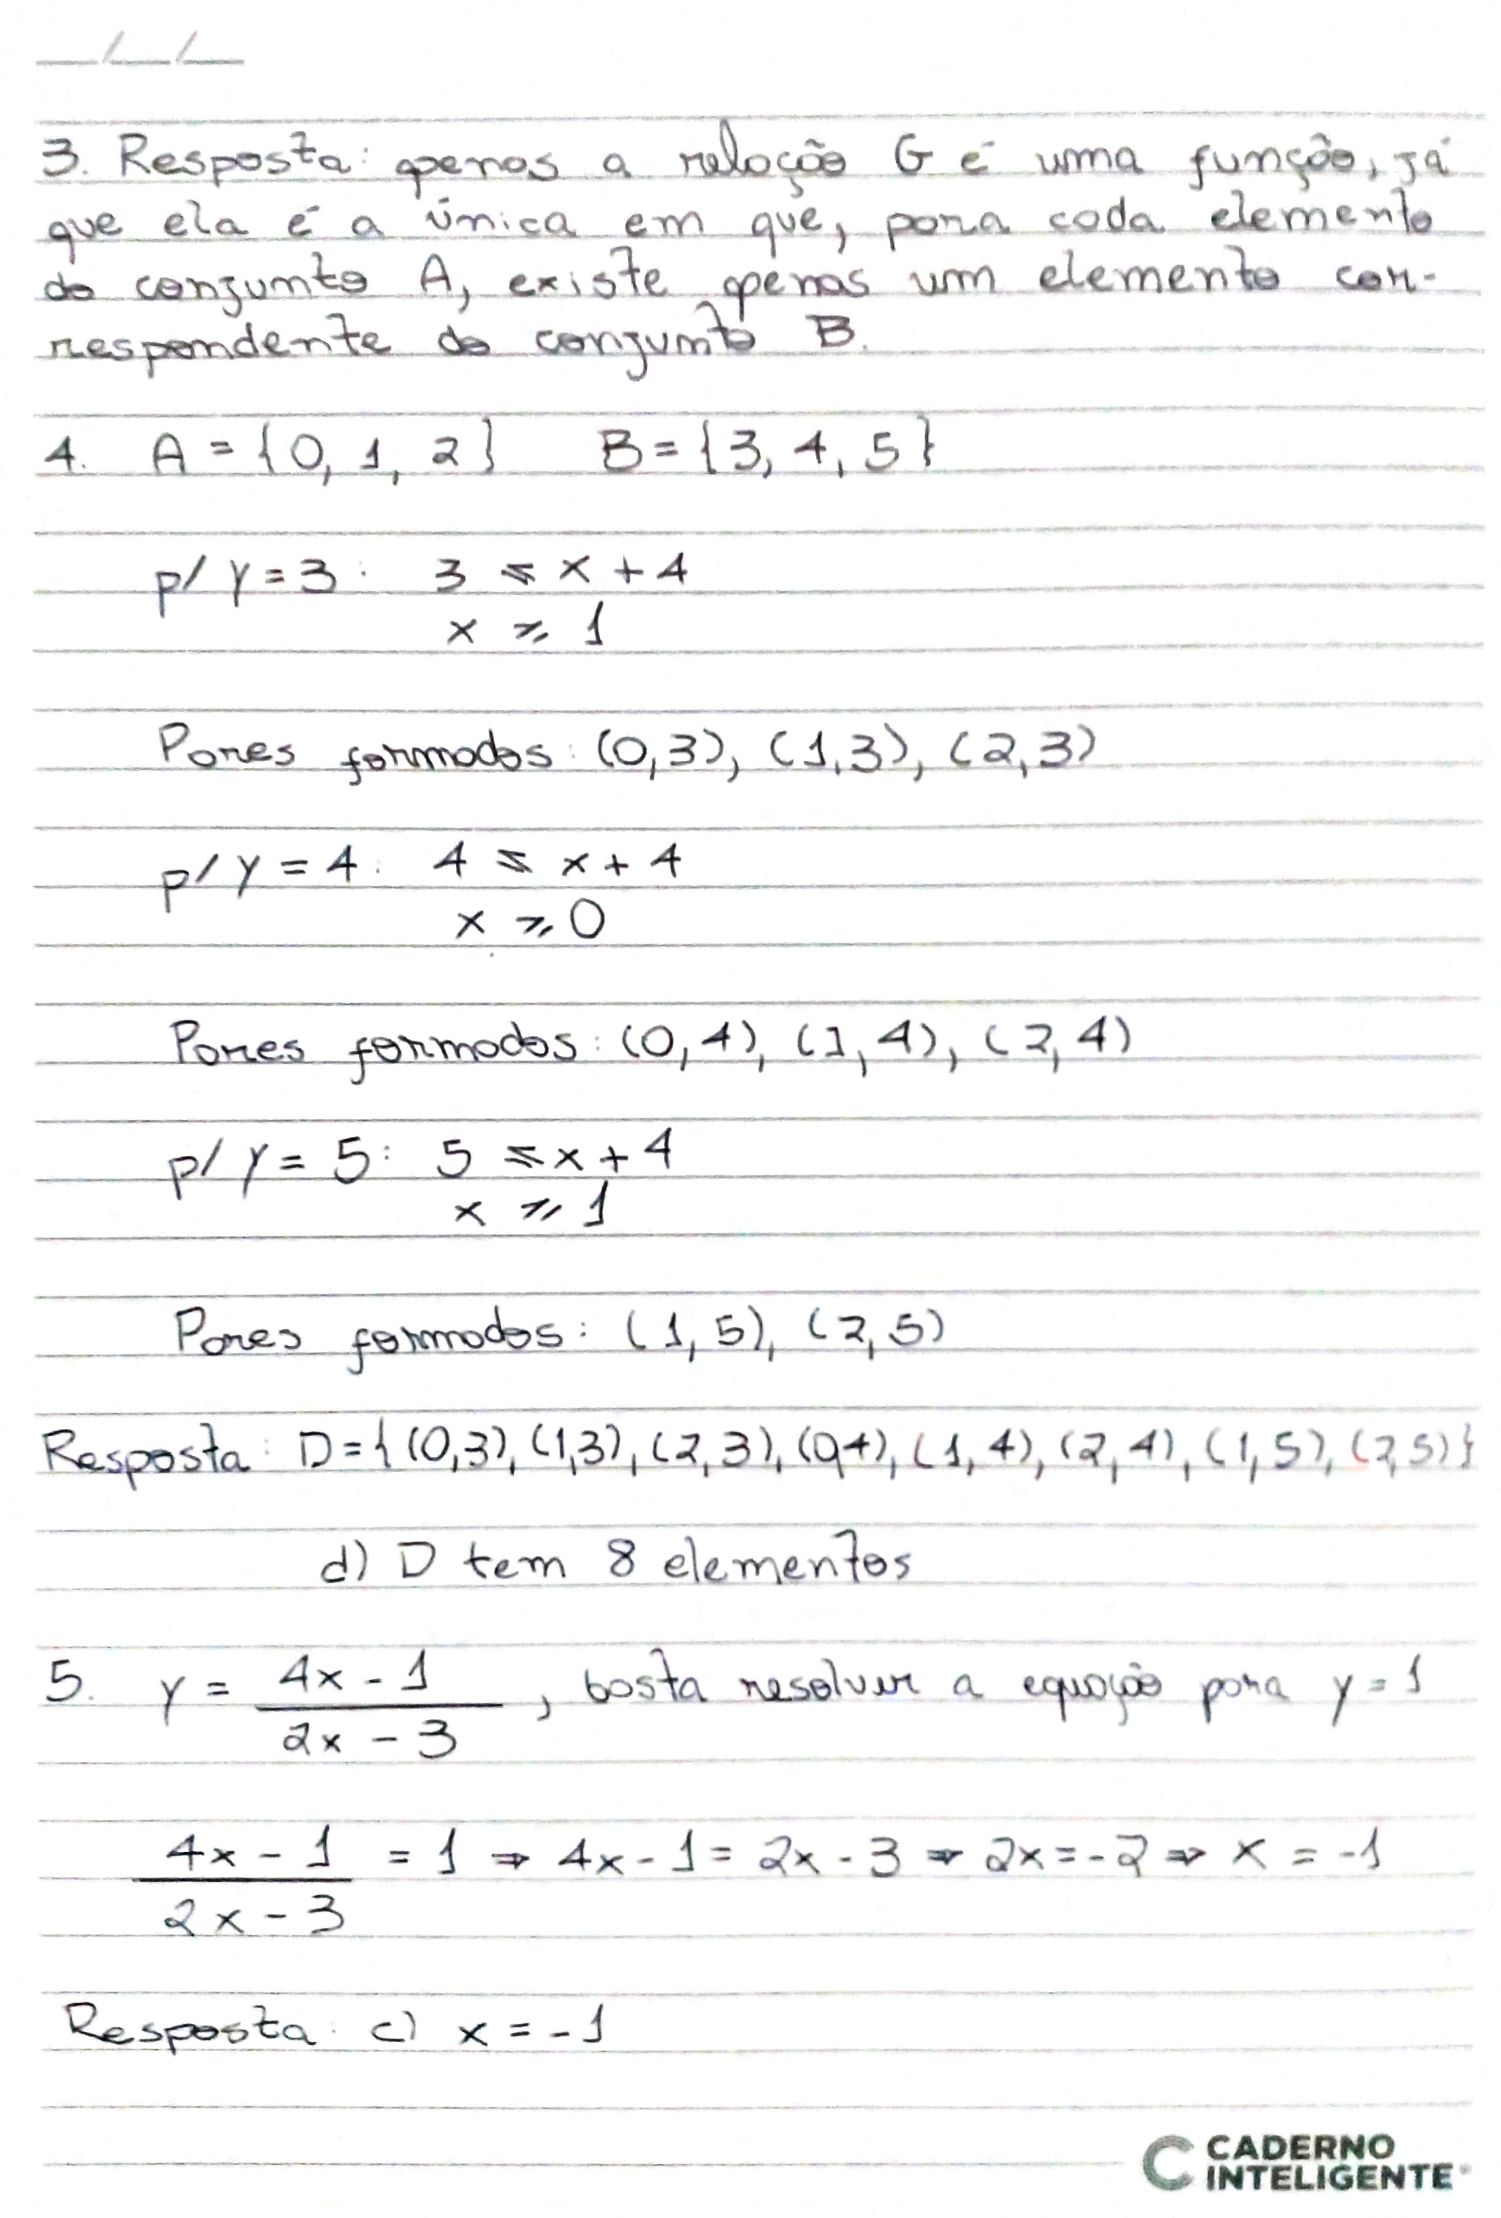 3. Resposta: apenas a relação G é uma função, já
que ela é a única em que, para cada elemento
do conjunto A, existe apenas um elemento cor-
respondente do conjunto B.
4. A = {0, 1, 2} B = {3, 4, 5}
p/ y = 3: 3 ⩽ x + 4
x ⩾ 1
Pares formados: (0,3), (1,3), (2,3)
p/ y = 4: 4 ⩽ x + 4
x ⩾ 0
Pares formados: (0,4), (1,4), (2,4)
p/ y = 5: 5 ⩽ x + 4
x ⩾ 1
Pares formados: (1,5), (2,5)
Resposta: D = {(0,3), (1,3), (2,3), (0,4), (1,4), (2,4), (1,5), (2,5)}
d) D tem 8 elementos
5. y = 4x - 1 / 2x - 3, basta resolver a equação para y = 1
4x - 1 / 2x - 3 = 1 ⇒ 4x - 1 = 2x - 3 ⇒ 2x = -2 ⇒ x = -1
Resposta: c) x = -1
CADERNO
INTELIGENTE